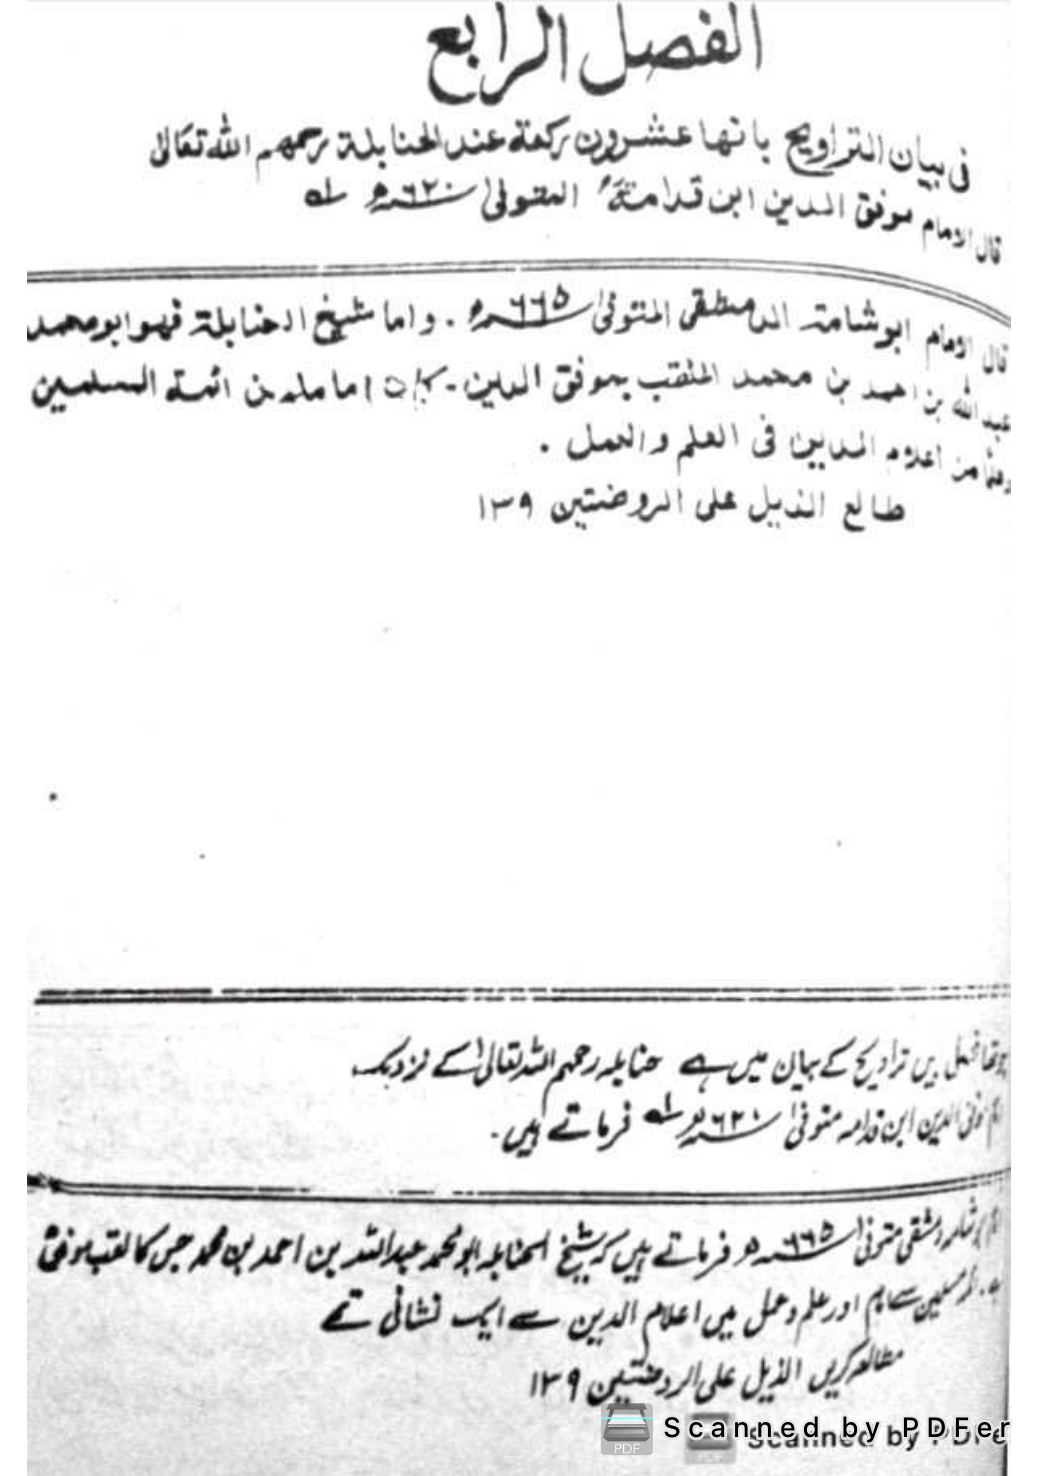 الفصل الرابع
فی بیان التراویح بانها عشرون رکعة عند الحنابلة رحمهم الله تعالٰی
قال الامام موفق الدین ابن قدامة المتوفیٰ ۶۲۰ھ لہ
قال الامام ابوشامة الدمشقی المتوفیٰ ۶۶۵ھ . واما شیخ الحنابلة فهو ابو محمد
عبدالله بن احمد بن محمد الملقب بموفق الدین - کان اماما من ائمة المسلمین
وعلما من اعلام الدین فی العلم والعمل .
طالع الذیل علی الروضتین ۱۳۹
چوتھا فصل بیس تراویح کے بیان میں ہے حنابلہ رحمہم اللہ تعالیٰ کے نزدیک
امام موفق الدین ابن قدامہ متوفیٰ ۶۲۰ھ لہ فرماتے ہیں۔
امام ابوشامہ دمشقی متوفیٰ ۶۶۵ھ فرماتے ہیں کہ شیخ الحنابلہ ابو محمد عبداللہ بن احمد بن محمد جس کا لقب موفق
سے امام اور علم و عمل میں اعلام الدین سے ایک نشانی تھے
مطالعہ کریں الذیل علی الروضتین ۱۳۹
Scanned by PDFer
Scanned by PDFe